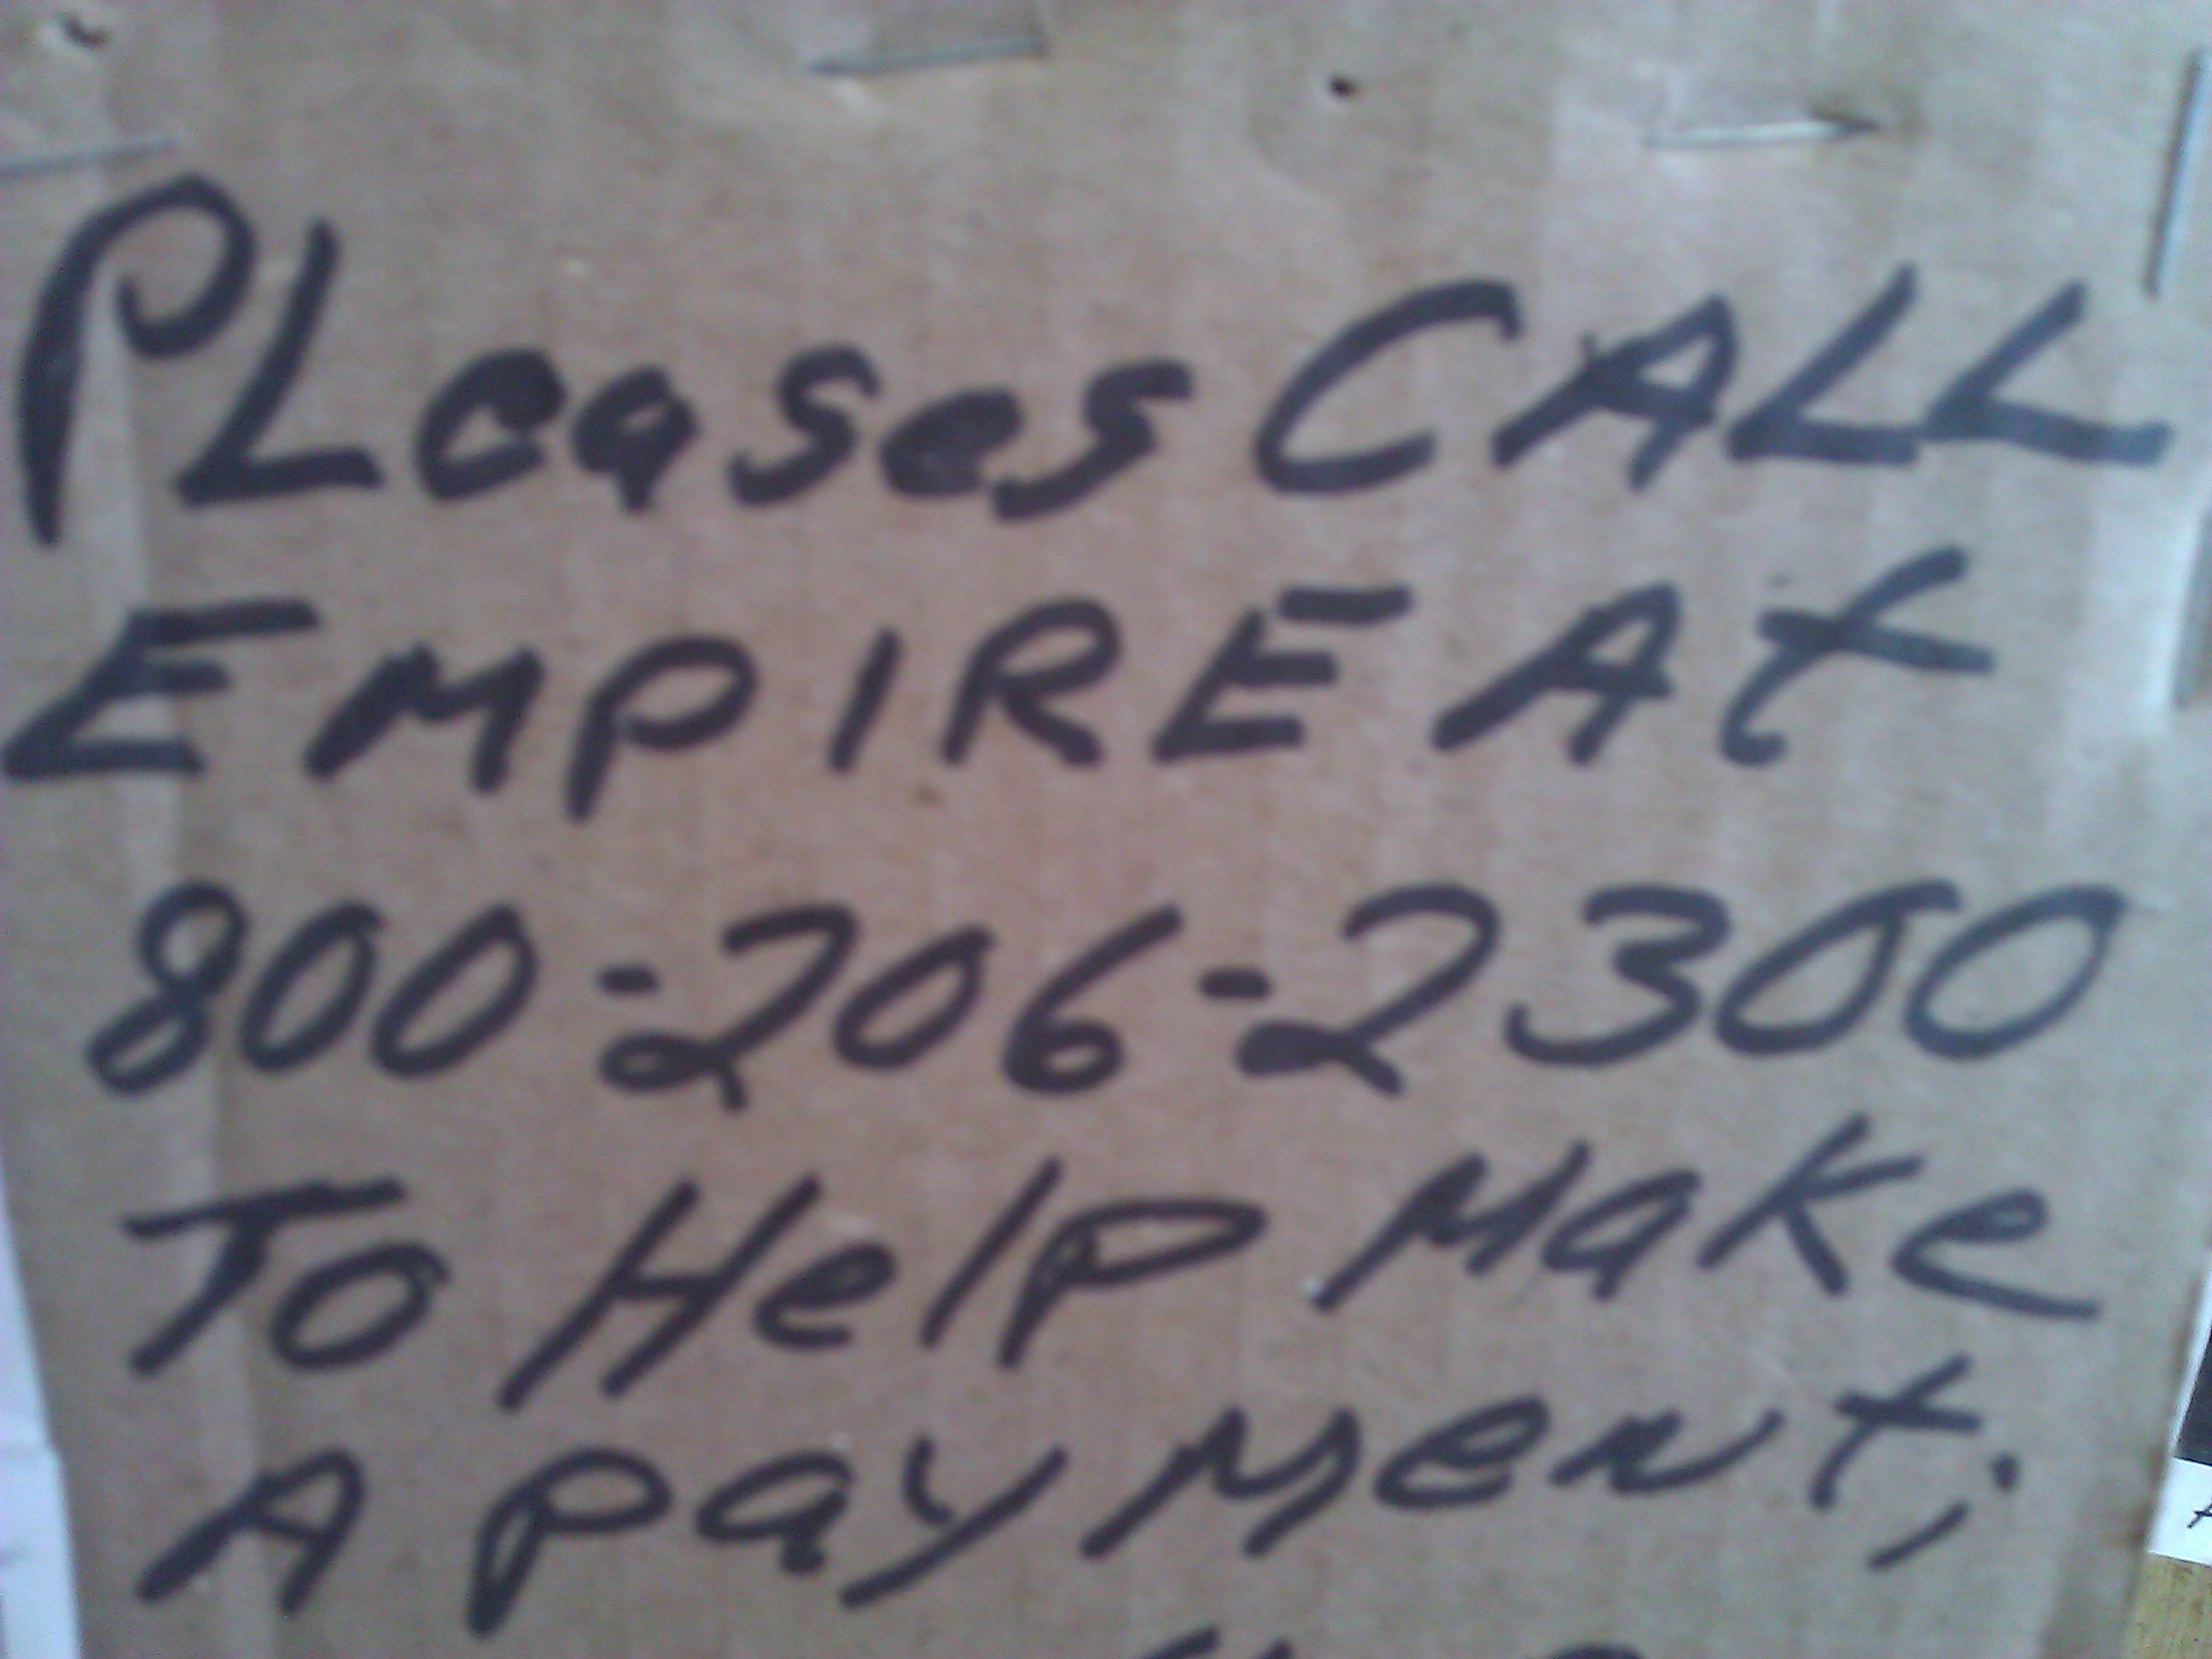 PLeases CALL
EMPIRE At
800-206-2300
To Help Make
A payMent,.